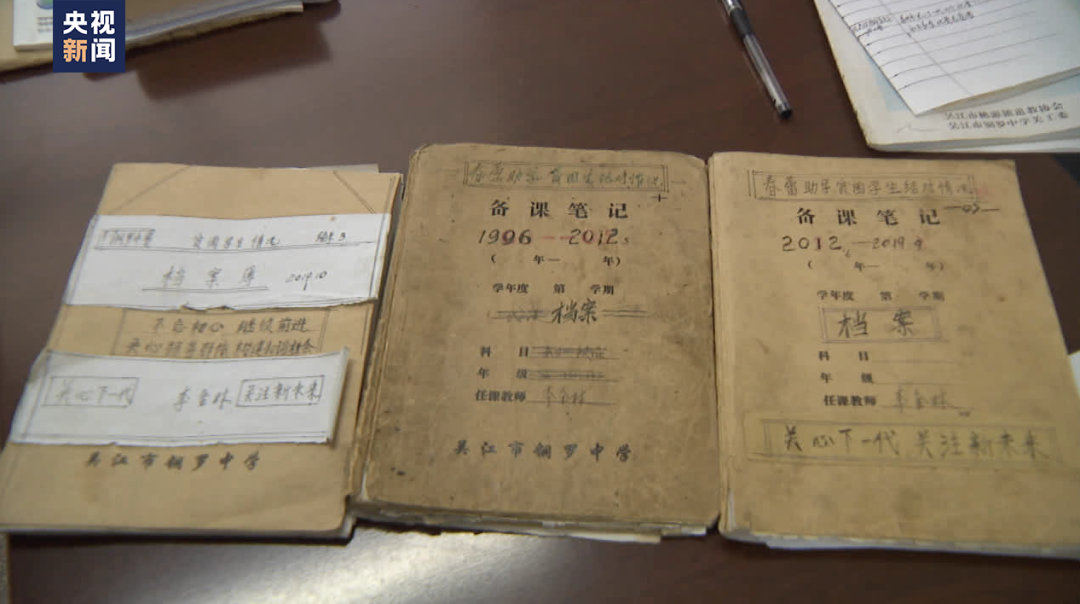 央视
新闻
吴江市桃源镇退教协会
吴江市铜罗中学关工委
贫困学生情况
档案簿 2019.10
不忘初心 继续前进
关心下一代
李金林
关注新未来
吴江市铜罗中学
春蕾助学贫困生结对情况
备课笔记
1996—2012.
( 年— 年)
学年度 第 学期
档案
科 目
年 级
任课教师 李金林
吴江市铜罗中学
春蕾助学贫困学生结对情况
备课笔记
2012.6—2019.9
( 年— 年)
学年度 第 学期
档案
科 目
年 级
任课教师 李金林
关心下一代 关注新未来